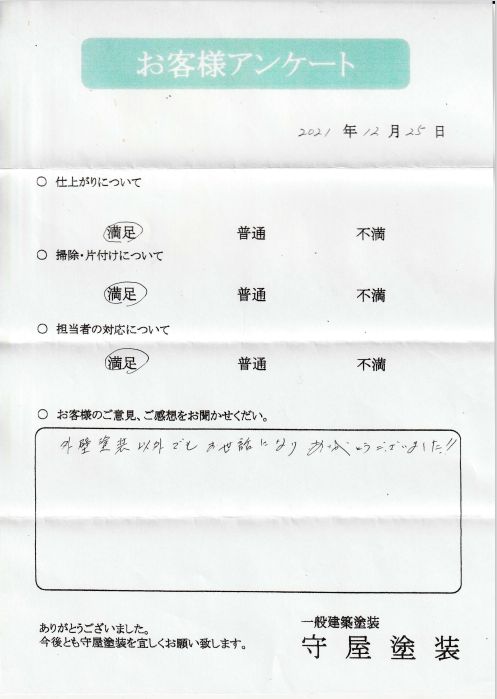 お客様アンケート
2021 年 12 月 25 日
○ 仕上がりについて
満足 普通 不満
○ 掃除・片付けについて
満足 普通 不満
○ 担当者の対応について
満足 普通 不満
○ お客様のご意見、ご感想をお聞かせくだい。
外壁塗装以外でもお世話になりありがとうございました!!
ありがとうございました。
今後とも守屋塗装を宜しくお願い致します。
一般建築塗装
守屋塗装